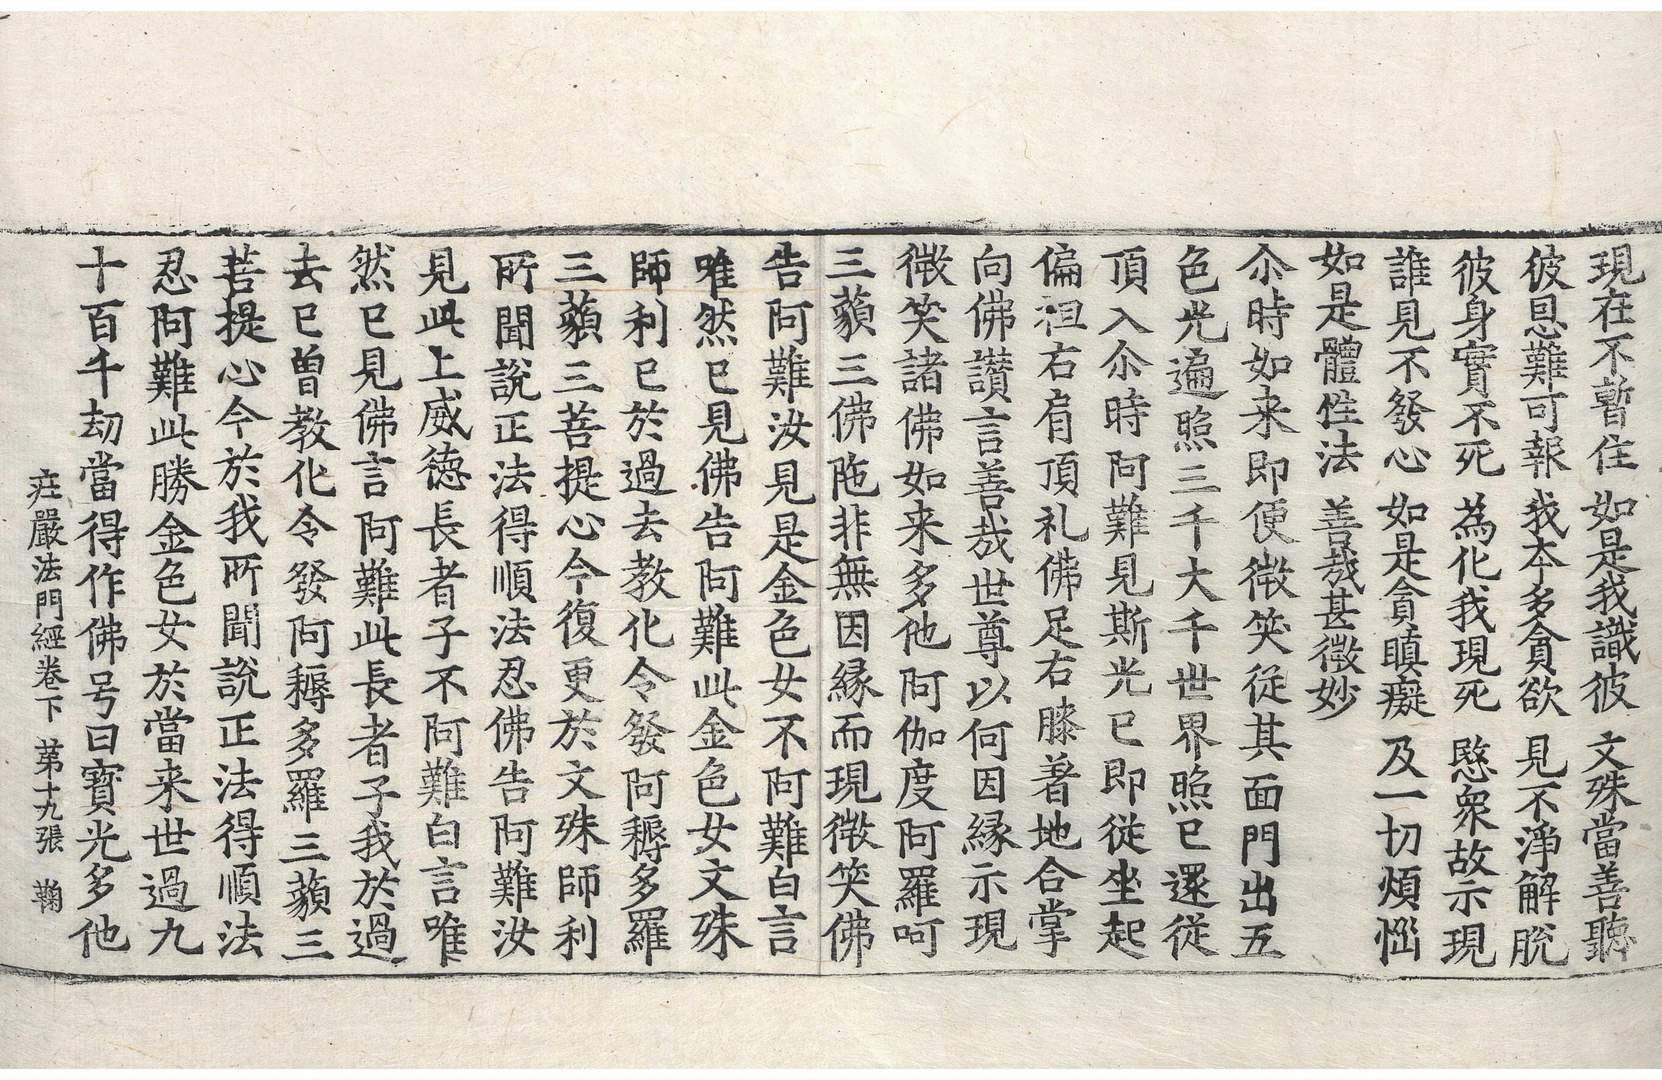 現在不暫住　如是我識彼　文殊當善聽
彼恩難可報　我本多貪欲　見不淨解脫
彼身實不死　為化我現死　愍衆故示現
誰見不發心　如是貪瞋癡　及一切煩惱
如是體性法　善哉甚微妙
尒時如来即便微笑從其面門出五
色光遍照三千大千世界照已還從
頂入尒時阿難見斯光已即從坐起
偏袒右肩頂礼佛足右膝著地合掌
向佛讃言善哉世尊以何因縁示現
微笑諸佛如来多他阿伽度阿羅呵
三藐三佛陁非無因縁而現微笑佛
告阿難汝見是金色女不阿難白言
唯然已見佛告阿難此金色女文殊
師利已於過去教化令發阿耨多羅
三藐三菩提心今復更於文殊師利
所聞說正法得順法忍佛告阿難汝
見此上威德長者子不阿難白言唯
然已見佛言阿難此長者子我於過
去已曽教化令發阿耨多羅三藐三
菩提心今於我所聞說正法得順法
忍阿難此勝金色女於當来世過九
十百千劫當得作佛号曰寶光多他
莊嚴法門經卷下　第十九張　鞠